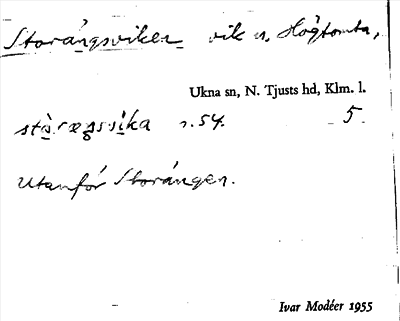 Storängsviken vik n. Högtomta,
Ukna sn, N. Tjusts hd, Klm. l.
stὼræŋsvika r. 54. 5.
Utanför Storängen.
Ivar Modéer 1955